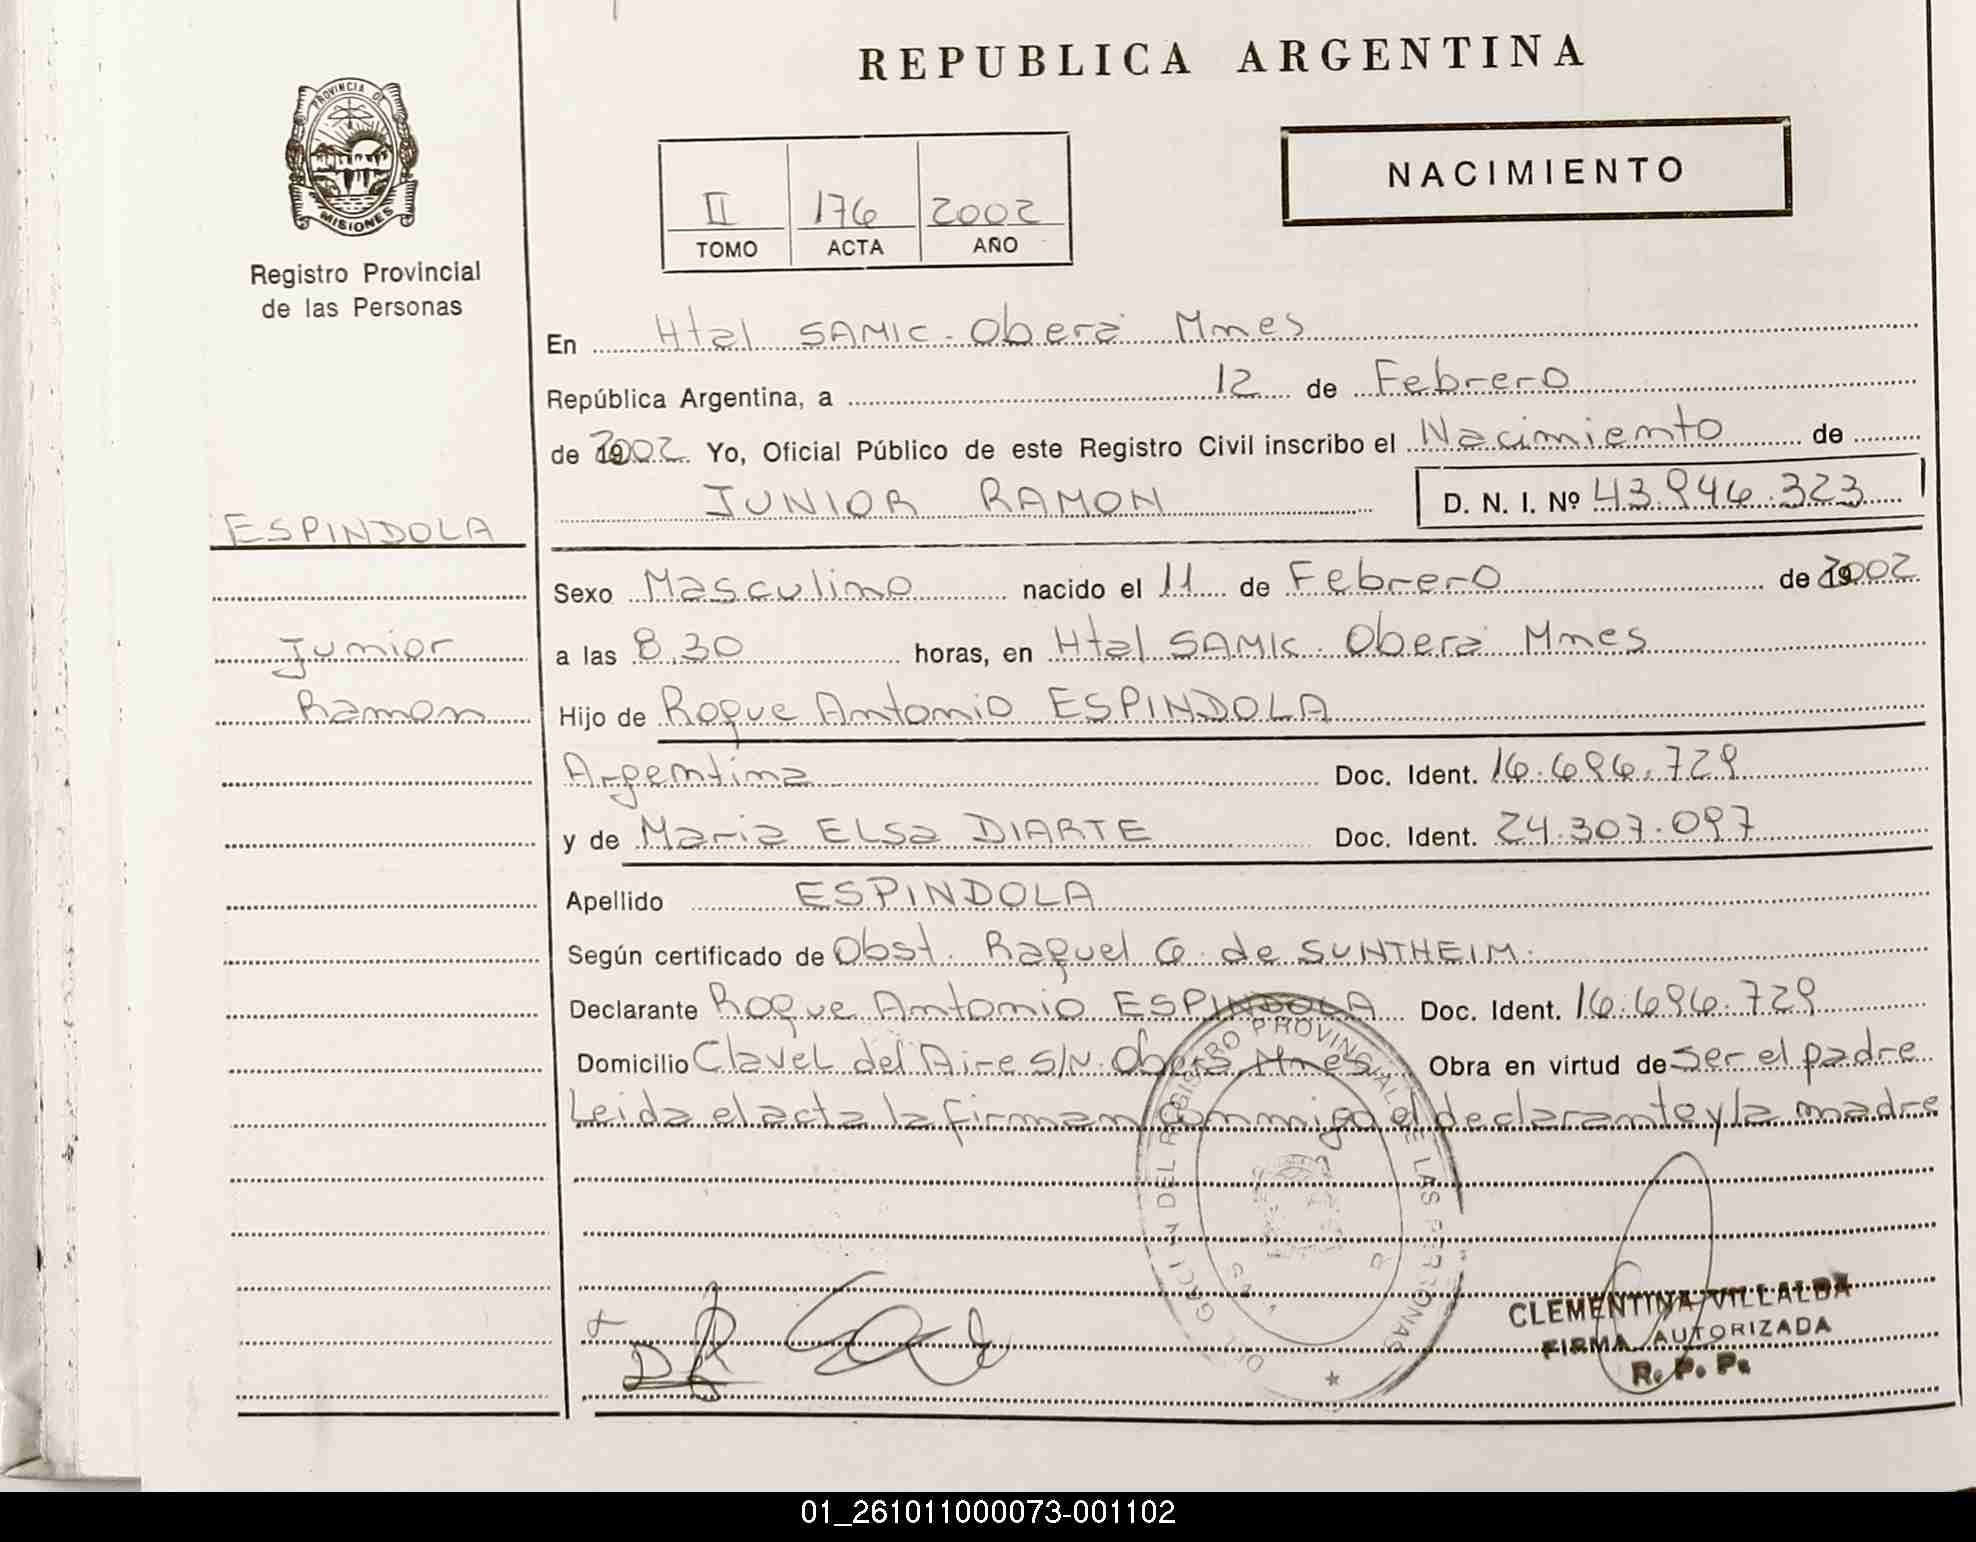 REPUBLICA ARGENTINA
PROVINCIA DE
MISIONES
Registro Provincial
de las Personas
NACIMIENTO
II 176 2002
TOMO ACTA AÑO
En Htal SAMIC - Oberá Mnes
República Argentina, a 12 de Febrero
de 2002 Yo, Oficial Público de este Registro Civil inscribo el Nacimiento de
JUNIOR RAMON D. N. I. Nº 43.946.323
ESPINDOLA
Sexo Masculino nacido el 11 de Febrero de 2002
Junior
a las 8.30 horas, en Htal SAMIC. Oberá Mnes
Ramon
Hijo de Roque Antonio ESPINDOLA
Argentina Doc. Ident. 16.696.729
y de Maria ELSa DIARTE Doc. Ident. 24.307.097
Apellido ESPINDOLA
Según certificado de Obst. Raquel G. de SUNTHEIM.
Declarante Roque Antonio ESPINDOLA Doc. Ident. 16.696.729
Domicilio Clavel del Aire S/N. Oberá Mnes. Obra en virtud de ser el padre
Leida el acta la firman conmigo el declarante y la madre
DEL REGISTRO PROVINCIAL DE LAS PERSONAS
CLEMENTINA VILLALBA
FIRMA AUTORIZADA
R. P. P.
01_261011000073-001102